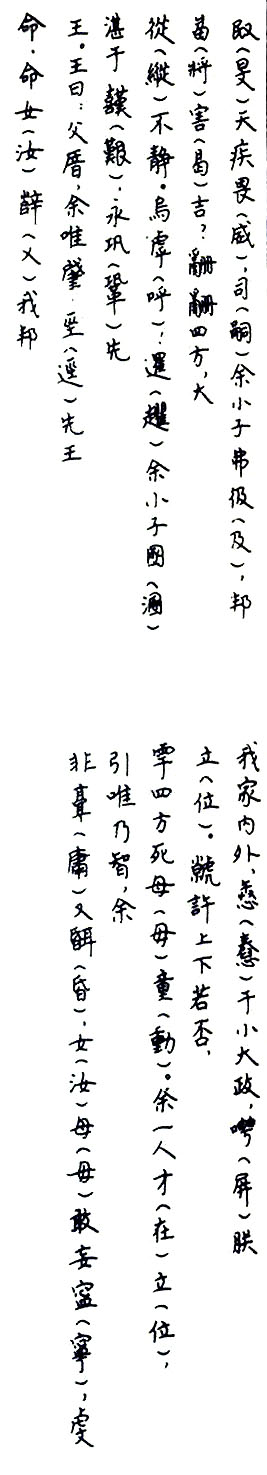 (旻)天疾畏(威),司(嗣)余小子弗彶(及),邦
(將)害(曷)吉?四方,大
從(縱)不静。烏虖(呼)!(趯)余小子圂(溷)
湛于(艱),永巩(鞏)先
王。王曰:父厝,余唯肇巠(逕)先王
命,命女(汝)辥(乂)我邦
我家内外,惷(憃)于小大政,(屏)朕
立(位)。虩許上下若否,
雩四方死母(毋)童(動)。余一人才(在)立(位),
引唯乃智,余
非(庸)又(昏),女(汝)母(毋)敢妄寍(寧),虔